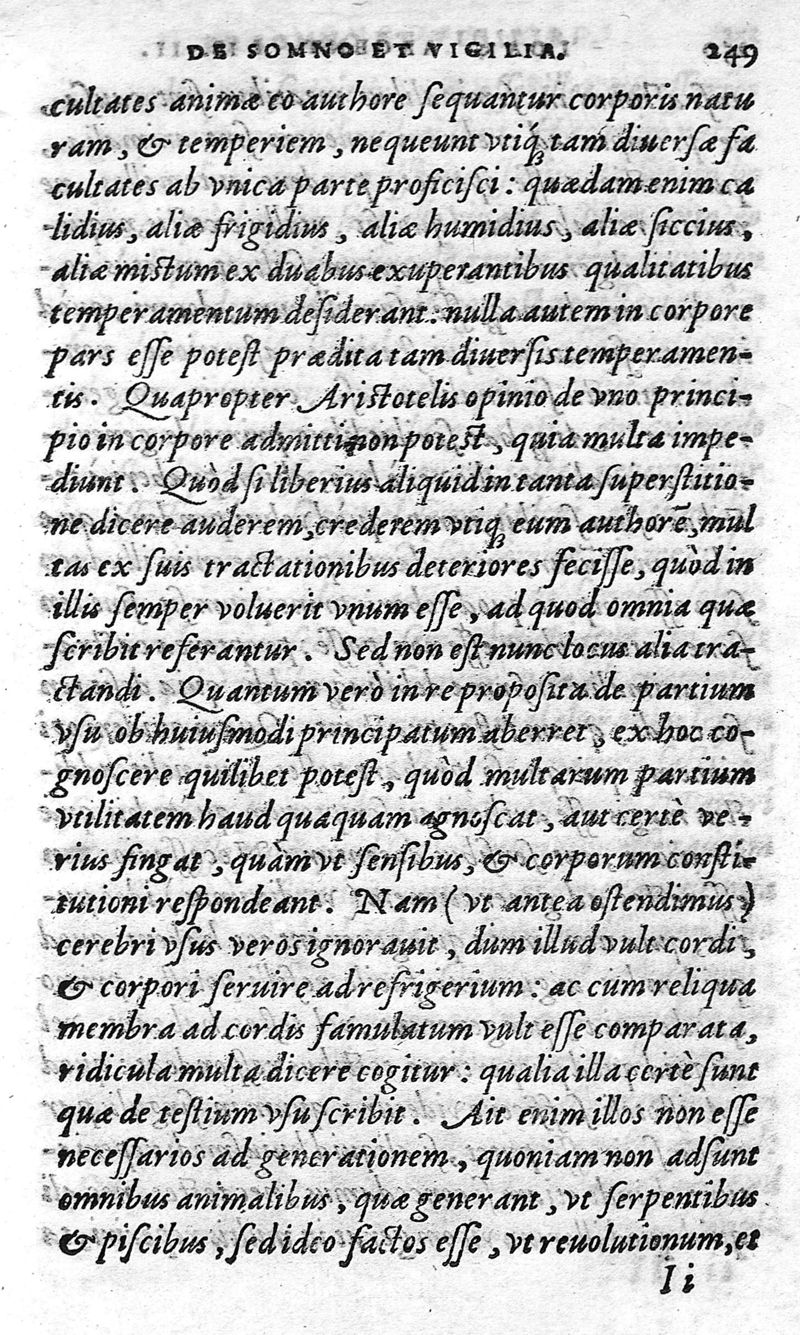 DE SOMNO ET VIGILIA. 249
cultates animæ eo authore ſequantur corporis natu
ram, & temperiem, nequeunt vtiq́ꝫ tam diuerſæ fa
cultates ab vnica parte proficiſci: quædam enim ca
lidius, aliæ frigidius, aliæ humidius, aliæ ſiccius,
aliæ mistum ex duabus exuperantibus qualitatibus
temperamentum deſiderant: nulla autem in corpore
pars eſſe poteſt prædita tam diuerſis temperamen-
tis. Quapropter Aristotelis opinio de vno princi-
pio in corpore admitti non potest, quia multa impe-
diunt. Quòd ſi liberius aliquid in tanta ſuperſtitio-
ne dicere auderem, crederem vtiqꝫ eum authorẽ, mul
tas ex ſuis tractationibus deteriores feciſſe, quòd in
illis ſemper voluerit vnum eſſe, ad quod omnia quæ
ſcribit referantur. Sed non eſt nunc locus alia tra-
ctandi. Quantum verò in re propoſita de partium
vſu ob huiuſmodi principatum aberret, ex hoc co-
gnoſcere quilibet poteſt, quòd multarum partium
vtilitatem haud quaquam agnoſcat, aut certè ve-
rius fingat, quàm vt ſenſibus, & corporum conſti-
tutioni reſpondeant. Nam (vt antea oſtendimus)
cerebri vſus veros ignorauit, dum illud vult cordi,
& corpori ſeruire ad refrigerium: ac cum reliqua
membra ad cordis famulatum vult eſſe comparata,
ridicula multa dicere cogitur: qualia illa certè ſunt
quæ de teſtium vſu ſcribit. Ait enim illos non eſſe
neceſſarios ad generationem, quoniam non adſunt
omnibus animalibus, quæ generant, vt ſerpentibus
& piſcibus, ſed ideo factos eſſe, vt reuolutionum, et
I i